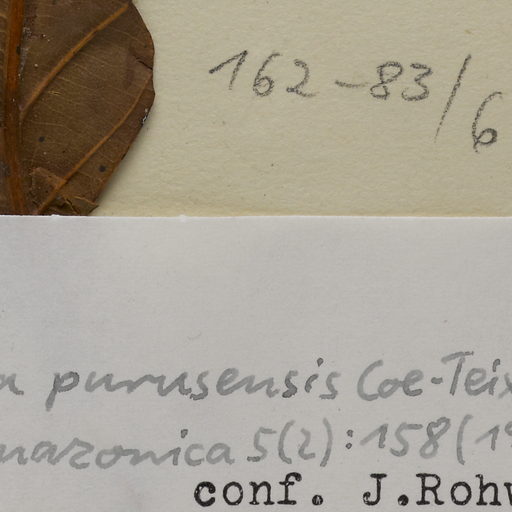 162-83/6
a purusensis Coe-Teix
mazonica 5(2):158(19
conf. J.Rohw